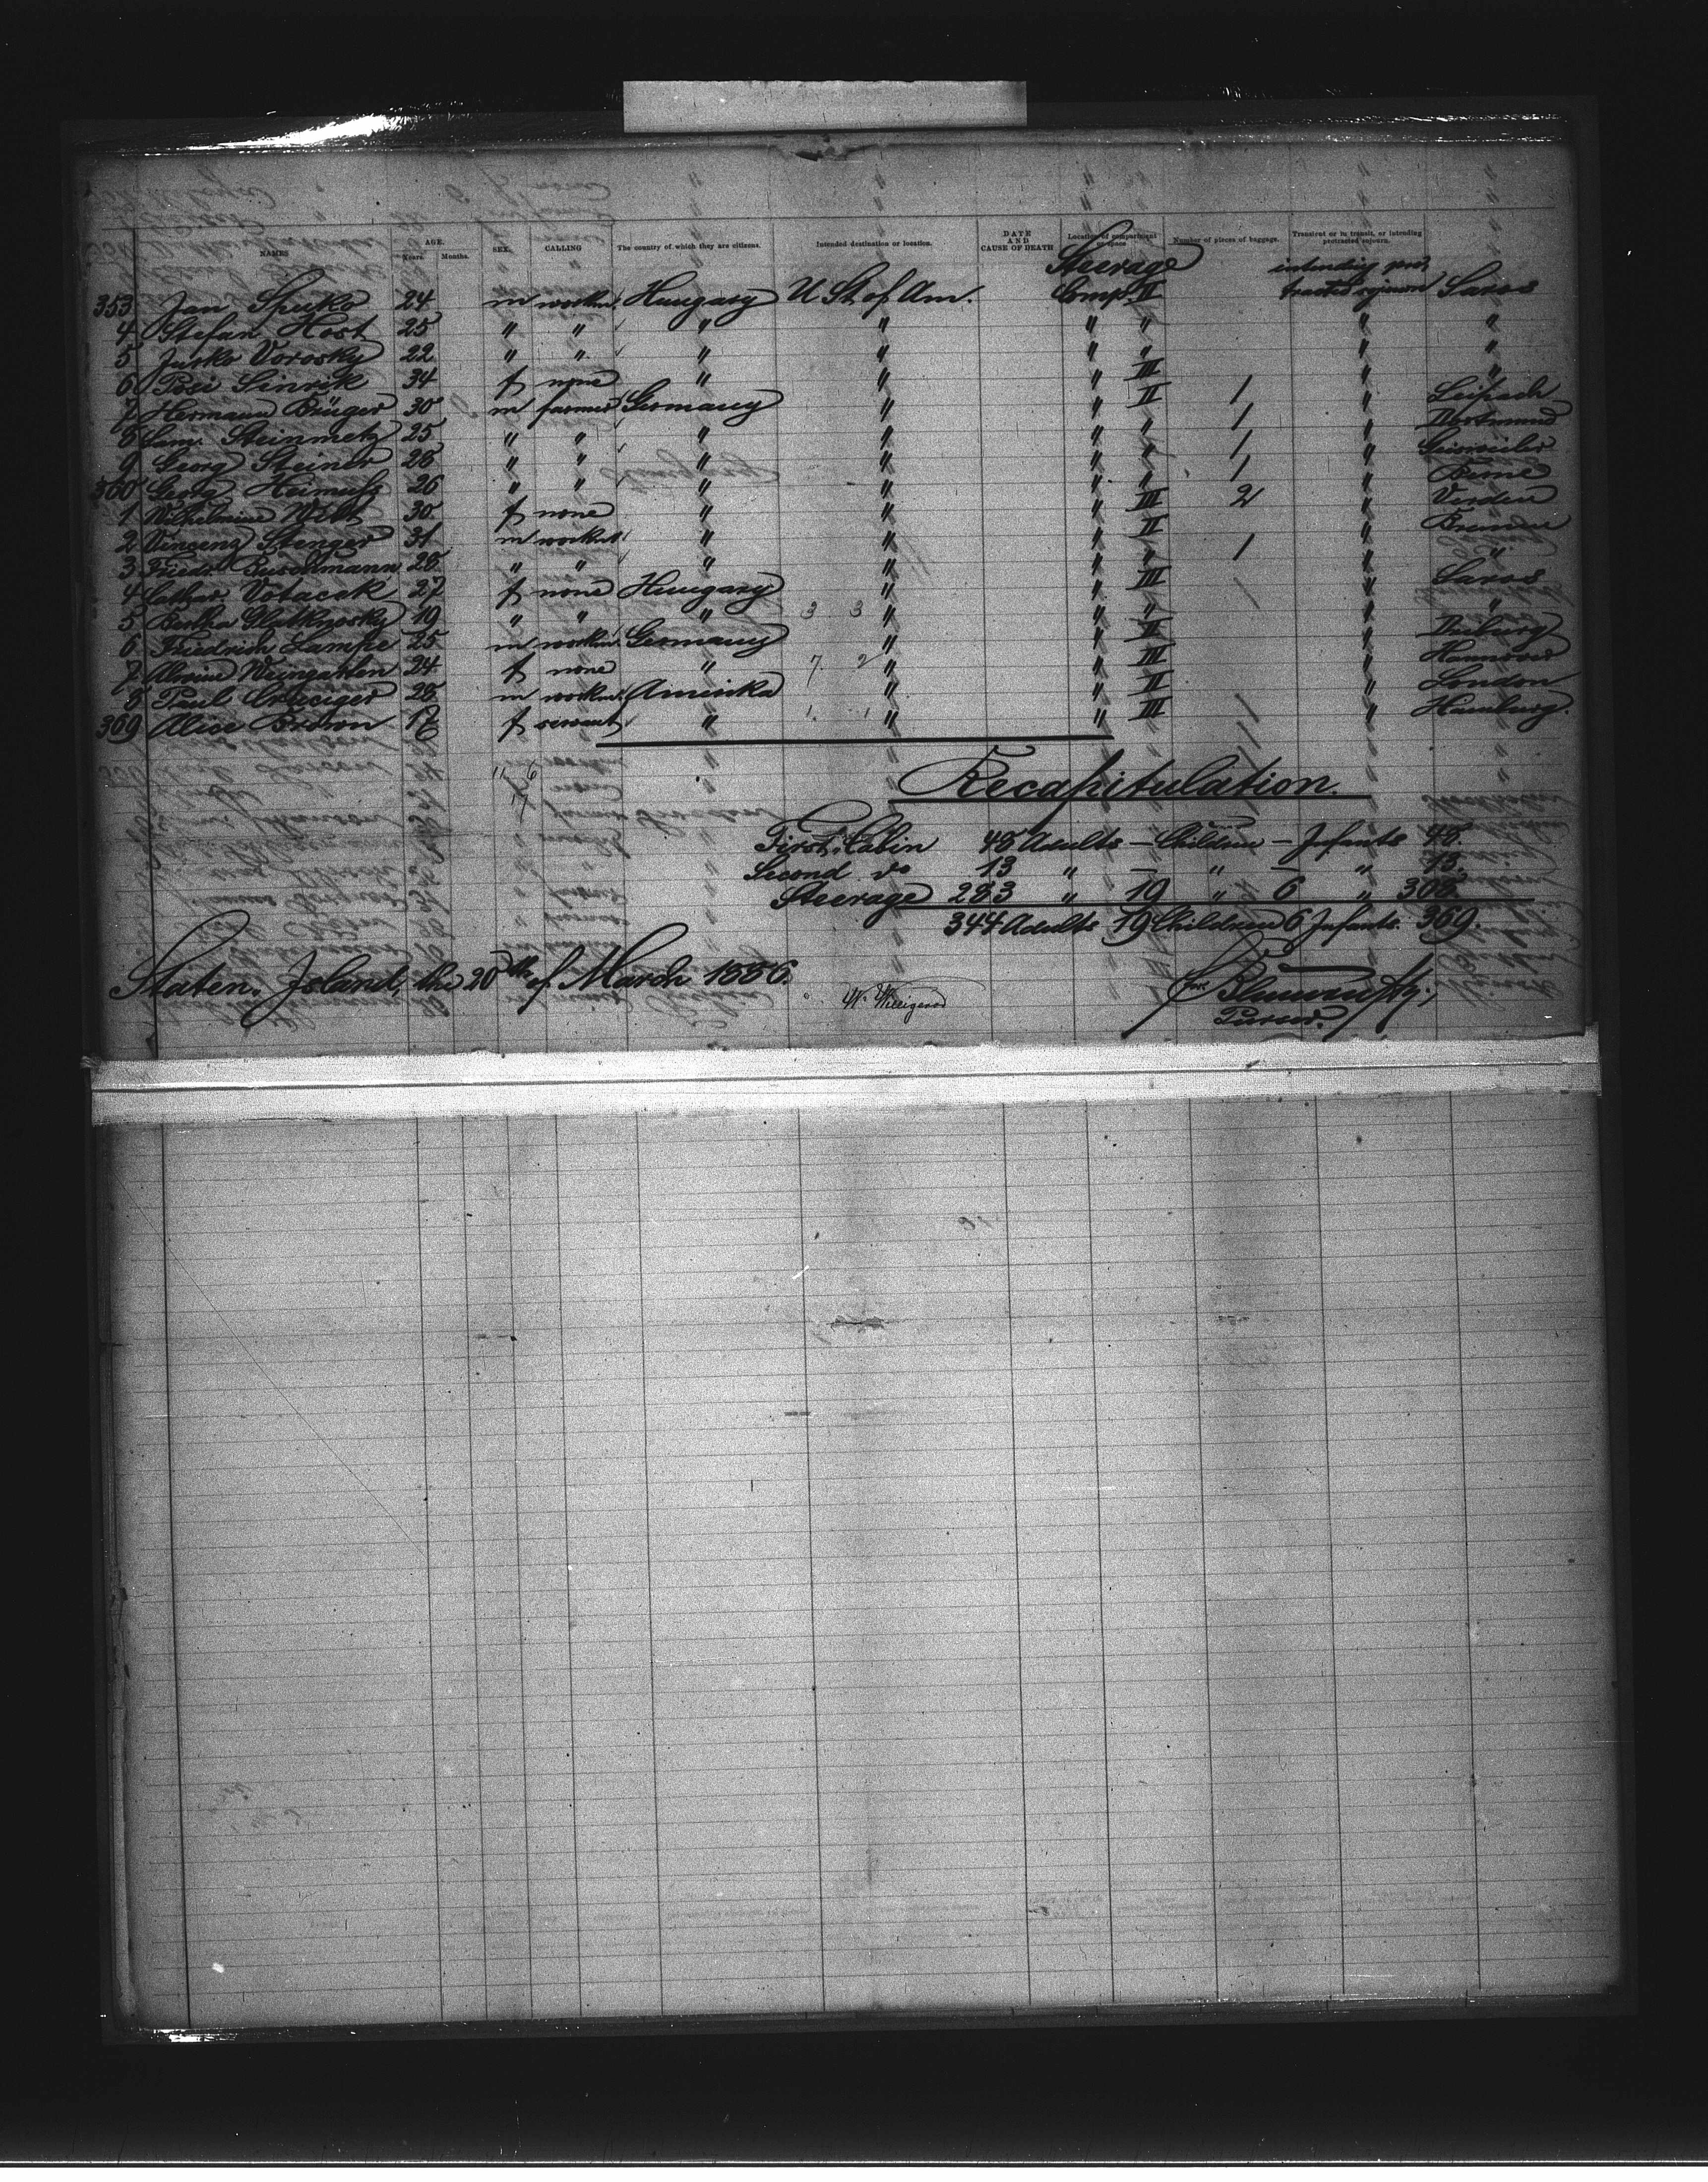 NAMES AGE. Years. Months. SEX. CALLING The country of which they are citizens. Intended destination or location. DATE AND CAUSE OF DEATH Location of compartment or space Number of pieces of baggage. Transient or in transit, or intending protracted sojourn.
Steerage intending pro
353 Jan 24 m workm. Hungary U St of Am. Comp. II tracted sojourn Saros
4 Stefan Host 25 " " " " " " " "
5 Jurko Vorosky 22 " " " " " " " "
6 34 f none " " " III " "
7 Hermann Krüger 30 m farmer Germany " " II 1 "
8 Sam. Steinmetz 25 " " " " " " 1 " Dortmund
9 Georg Steiner 28 " " " " " " 1 "
360 Georg 26 " " " " " " 1 "
1 Wilhelmine 30 f none " " " III 2 " Verden
2 Vincenz Stenger 31 m workm. " " " II " Bremen
3 Friedr. Buschmann 28 " " " " " " 1 " "
4 Cathar. Votacek 27 f none Hungary " " III " Saros
5 Bertha 19 " " " 3 3 " " " " "
6 Friedrich Lampe 25 m workm. Germany " " II "
7 Alwine Weingarten 24 f none " 7 2 " " III " Hannover
8 Paul Cruciger 28 m workm. Amerika " " II " London
369 Alice Brown 17 f servant " 1 1 " " III " Hamburg.
11 6
17
Recapitulation.
First Cabin 48 Adults — Children — Infants 48.
Second do 13 " — " — " 13.
Steerage 283 " 19 " 6 " 308.
344 Adults 19 Children 6 Infants. 369.
Staten Island, the 20th of March 1886.
W. Willigerod
Purser.